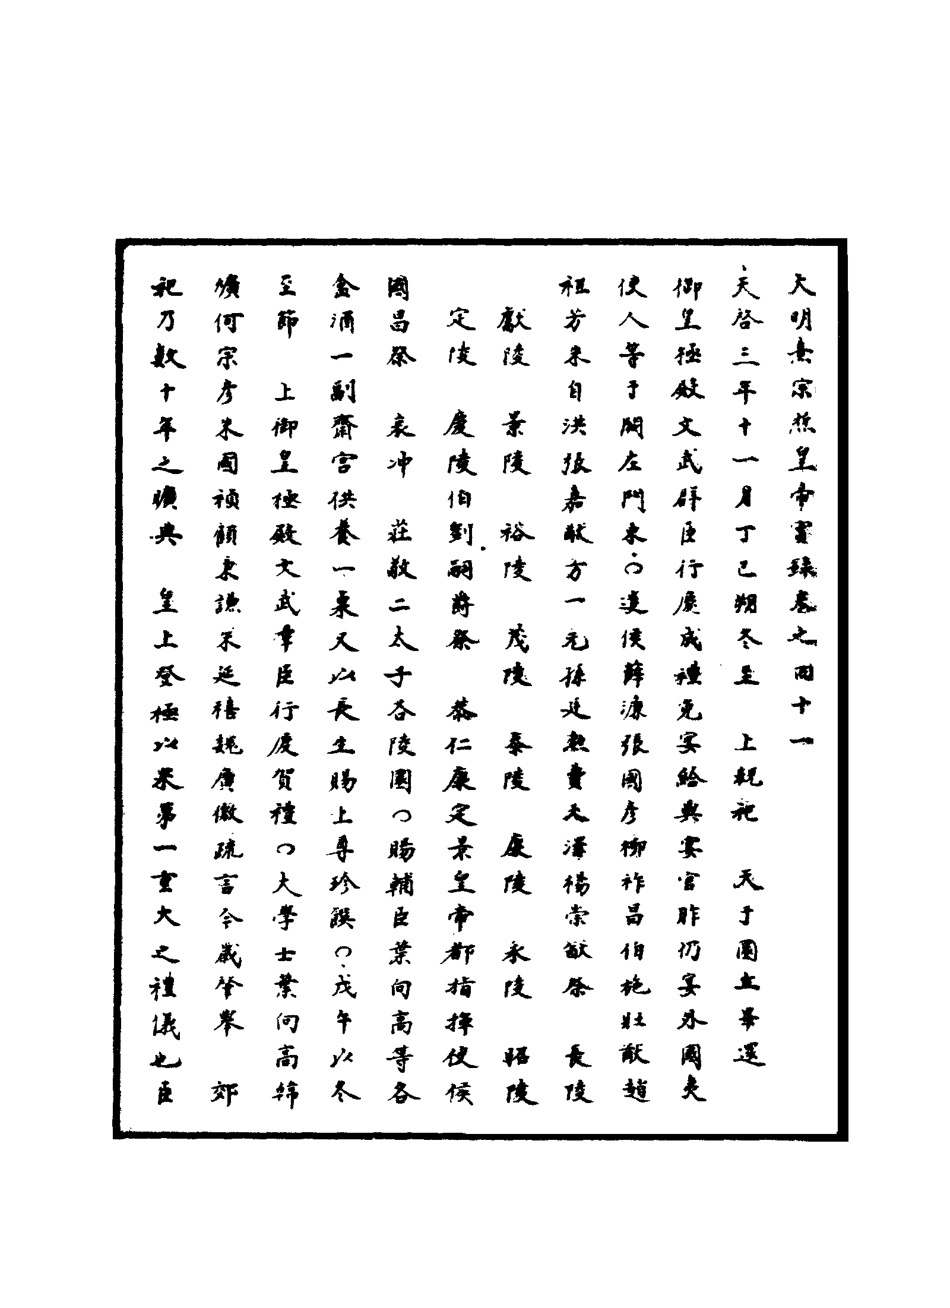 大明熹宗悊皇帝實錄卷之四十一
天啓三年十一月丁巳朔冬至 上親祀 天于圜丘畢還
御皇極殿文武群臣行慶成禮免宴給與宴官胙仍宴外國夷
使人等于闕左門東○遣侯薛濂張國彥柳祚昌伯施壯猷趙
祖芳朱自洪張嘉猷方一元孫廷勲費天澤楊崇猷祭 長陵
獻陵 景陵 裕陵 茂陵 泰陵 康陵 永陵 昭陵
定陵 慶陵伯劉嗣爵祭 恭仁康定景皇帝都指揮使侯
國昌祭 哀冲 莊敬二太子各陵園○賜輔臣葉向高等各
金酒一副齋宮供養一棗又以長生賜上尊珍饌○戊午以冬
至節 上御皇極殿文武羣臣行慶賀禮○大學士葉向高韓
爌何宗彥朱國禎顧秉謙朱延禧魏廣微疏言今歲肇舉 郊
祀乃數十年之曠典 皇上登極以來第一重大之禮儀也臣